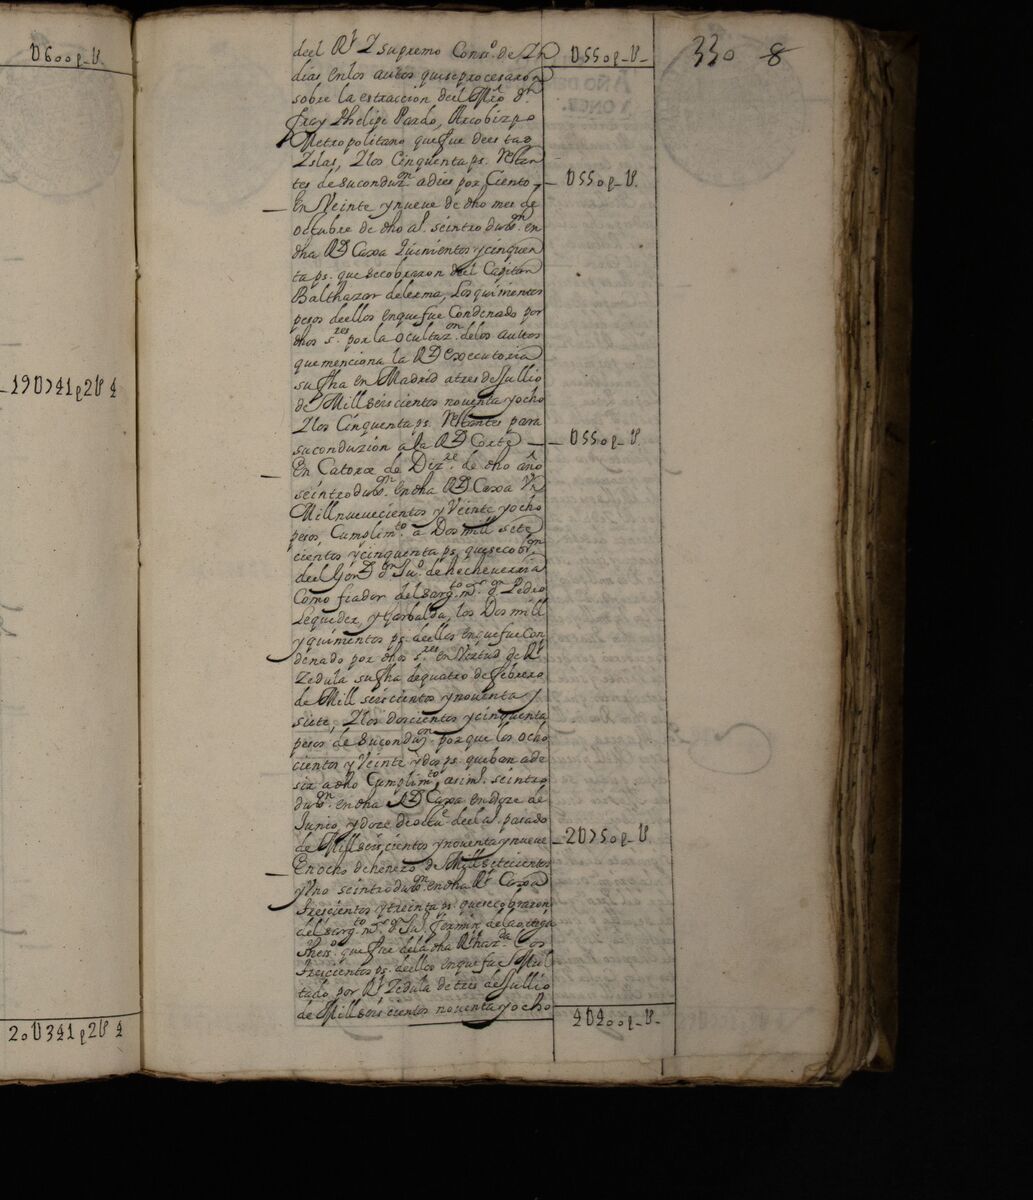 U600p-U.
19U741p2U4
20U341p2U4
330 8
deel Rl. Y supremo Conso. de Yn
U550p-U.
dias en los autos que se procesaron
sobre la estraccion deel Mro. Dn.
fray Phelipe Pardo, Arcobizpo
Metropolitano que fue de estas
Yslas, Y los Cinquenta ps. restan
tes de su conduzon. a dies por Ciento
U550p-U.
en Veinte y nueve de dho mes de
octubre de dho aº. se introduxeron. en
dha Rl. Caxa Quinientos y cinquen
ta ps. que se cobraron del Capitan
Balthazar de lerma, Los quinientos
pesos deellos en que fue Condenado por
dhos sres. por la ocultazon. de los autos
que menciona la Rl. executoria
su fha en Madrid a tres de Jullio
de Mill seis cientos noventa y ocho
Y los Cinquenta ps. restantes para
su conduzión a la Rl. Corte
U550p-U.
En Catorce de Dizre. de dho año
se introduxon. en dha Rl. Caxa Un
Mill nuevecientos y Veinte y ocho
pesos, Cumplimto. a Dos mill sete
cientos y cinquenta ps. que se cobron.
deel Gonrl. Dn. Juo. de hecheverria
Como fiador del sargto. mr. Dn. Pedro
Lequedex, y Garbalda, los Dos mill
y quinientos ps. deellos en que fue Con
denado por dhos sres. en Virtud de Rl.
Zedula su fha de quatro de febrero
de Mill seis cientos y noventa y
siete, Y los doscientos y cinquenta
pesos de su conduzon. porque los ocho
cientos y Veinte y dos ps. que ban a de
sir a dho Cumplimto. asiml. se intro
duxon. en dha Rl. Caxa en doze de
Junio, y doze de octue. deel aº. pasado
de Mill seis cientos y noventa y nueve
2U750p-U
En ocho de henero de Mill setecientos
y Vno se introduxon. en dha Rl. Caxa
trescientos y treinta ps. que se cobraron
del sargto. mr. Dn. Juo. fermin
thesº. que fue de la dha Rl. hazda. Los
trescientos ps. deellos en que fue Mul
tado por Rl. Zedula de tres de Jullio
de Mill seis cientos noventa y ocho
4U400p-U-